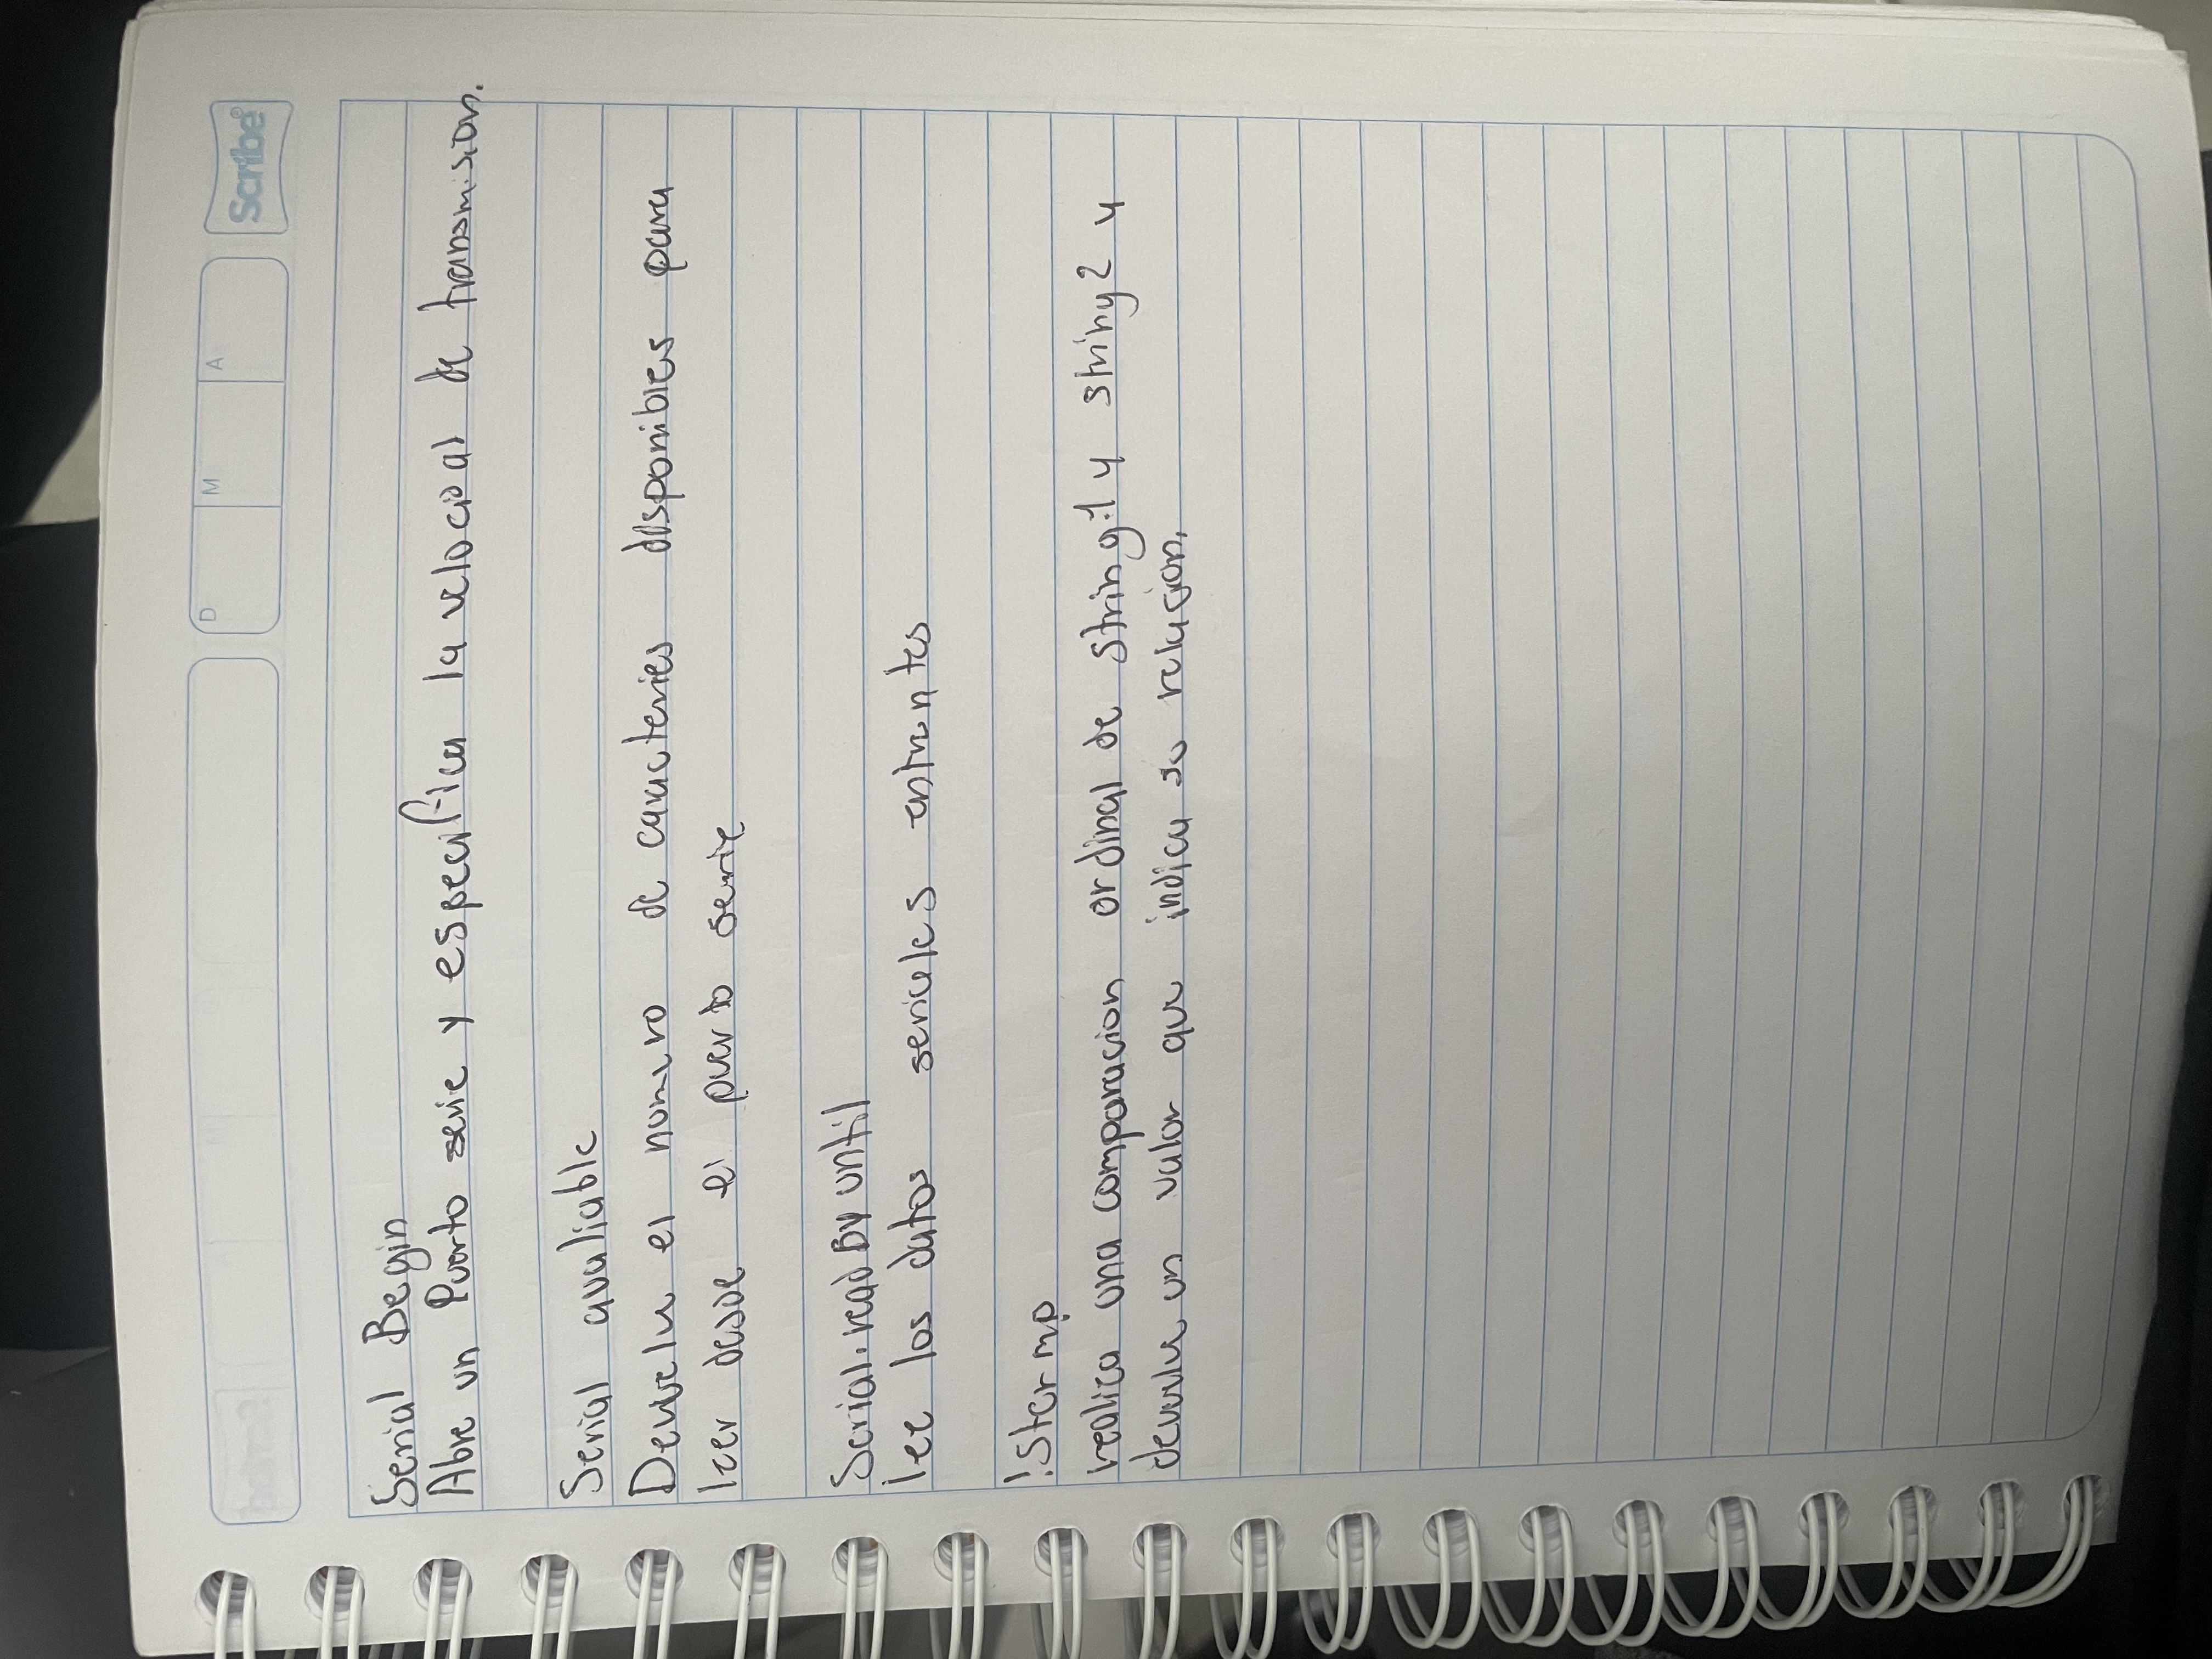 Scribe®
D M A
Serial Begin
Abre un Puerto serie y especifica la velocidad de transmision.
Serial avaliable
Devuelve el numero de caracteries disponibles para
leer desde el puerto serie
Serial.read By until
lee los datos seriales entrantes
!Stermp
realica una comparacion ordinal de string1 y string2 y
devuelve un valor que indica su relacion.